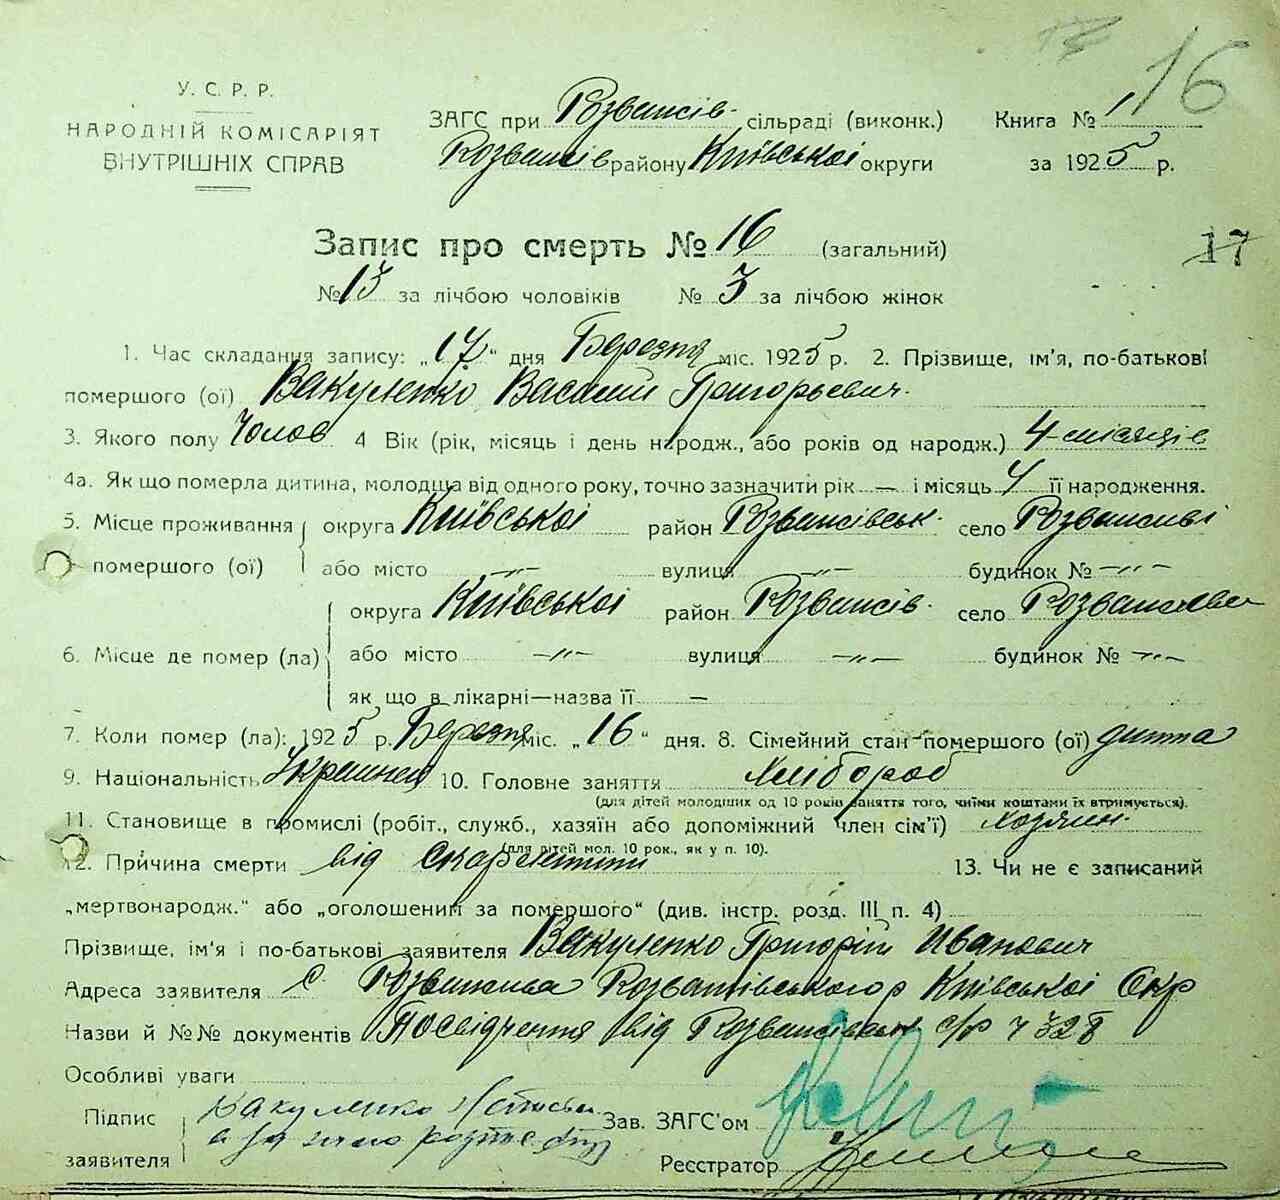 16
У. С. Р. Р.
НАРОДНІЙ КОМІСАРІЯТ
ВНУТРІШНІХ СПРАВ
ЗАГС при Розважів. сільраді (виконк.) Книга № 1
Розважів району Київської округи за 1925 р.
Запис про смерть № 16 (загальний)
17
№ 13 за лічбою чоловіків № 3 за лічбою жінок
1. Час складання запису: „17" дня Березня міс. 1925 р. 2. Прізвище, ім'я, по-батькові
помершого (ої) Вакуленко Василий Григорьевич.
3. Якого полу Чолов 4 Вік (рік, місяць і день народж., або років од народж.) 4-місяців
4а. Як що померла дитина, молодща від одного року, точно зазначити рік — і місяць 4 її народження.
5. Місце проживання округа Київської район Розважівськ. село Розваживі
помершого (ої) або місто -"- вулиця -"- будинок № -"-
округа Київської район Розважів. село
6. Місце де помер (ла) або місто -"- вулиця -"- будинок № -"-
як що в лікарні—назва її —
7. Коли помер (ла): 1925 р. Березня міс. „16" дня. 8. Сімейний стан помершого (ої) дитта
9. Національність 10. Головне заняття Хлібороб
(для дітей молодших од 10 років заняття того, чиїми коштами їх втримується).
11. Становище в промислі (робіт., служб., хазяїн або допоміжний член сім'ї) хозяин.
(для дітей мол. 10 рок., як у п. 10).
12. Причина смерти від скарлатини 13. Чи не є записаний
„мертвонародж." або „оголошеним за помершого" (див. інстр. розд. III п. 4)
Прізвище, ім'я і по-батькові заявителя Вакуленко Григорій Иванович
Адреса заявителя с. Розважива Розважівського р Київської Окр
Назви й №№ документів Посвідчення від с/р ч 328
Особливі уваги
Підпис Вакуленко
заявителя а за його
Зав. ЗАГС'ом
Реєстратор